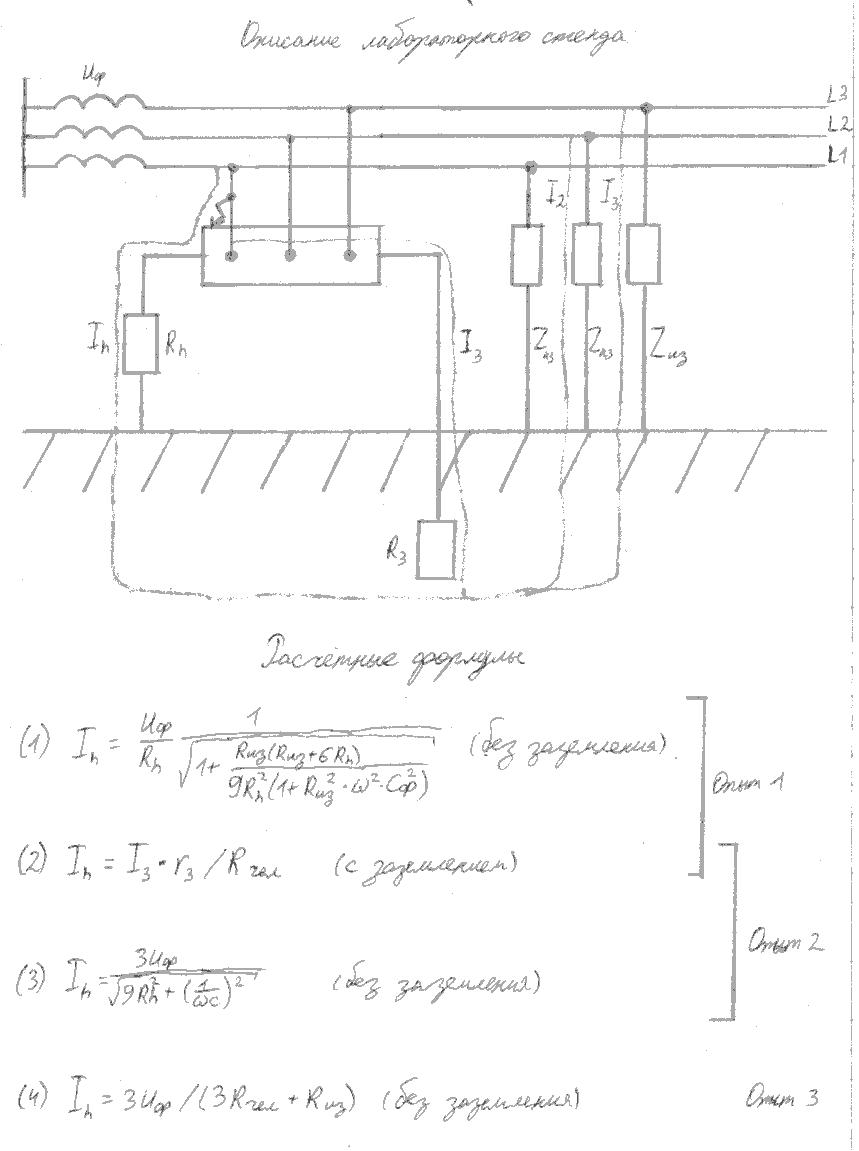 Описание лабораторного стенда
Uф
L3
L2
L1
I₂ I₃
Iₕ Rₕ I₃ Zиз Zиз Zиз
R₃
Расчётные формулы
(1) Iₕ = Uф/Rₕ · 1/√(1+ Rиз(Rиз+6Rₕ)/(9Rₕ²(1+Rиз²·ω²·Cф²))) (без заземления)
Опыт 1
(2) Iₕ = I₃·r₃/Rчел (с заземлением)
Опыт 2
(3) Iₕ = 3Uф/√(9Rₕ²+(1/ωc)²) (без заземления)
(4) Iₕ = 3Uф/(3Rчел + Rиз) (без заземления) Опыт 3